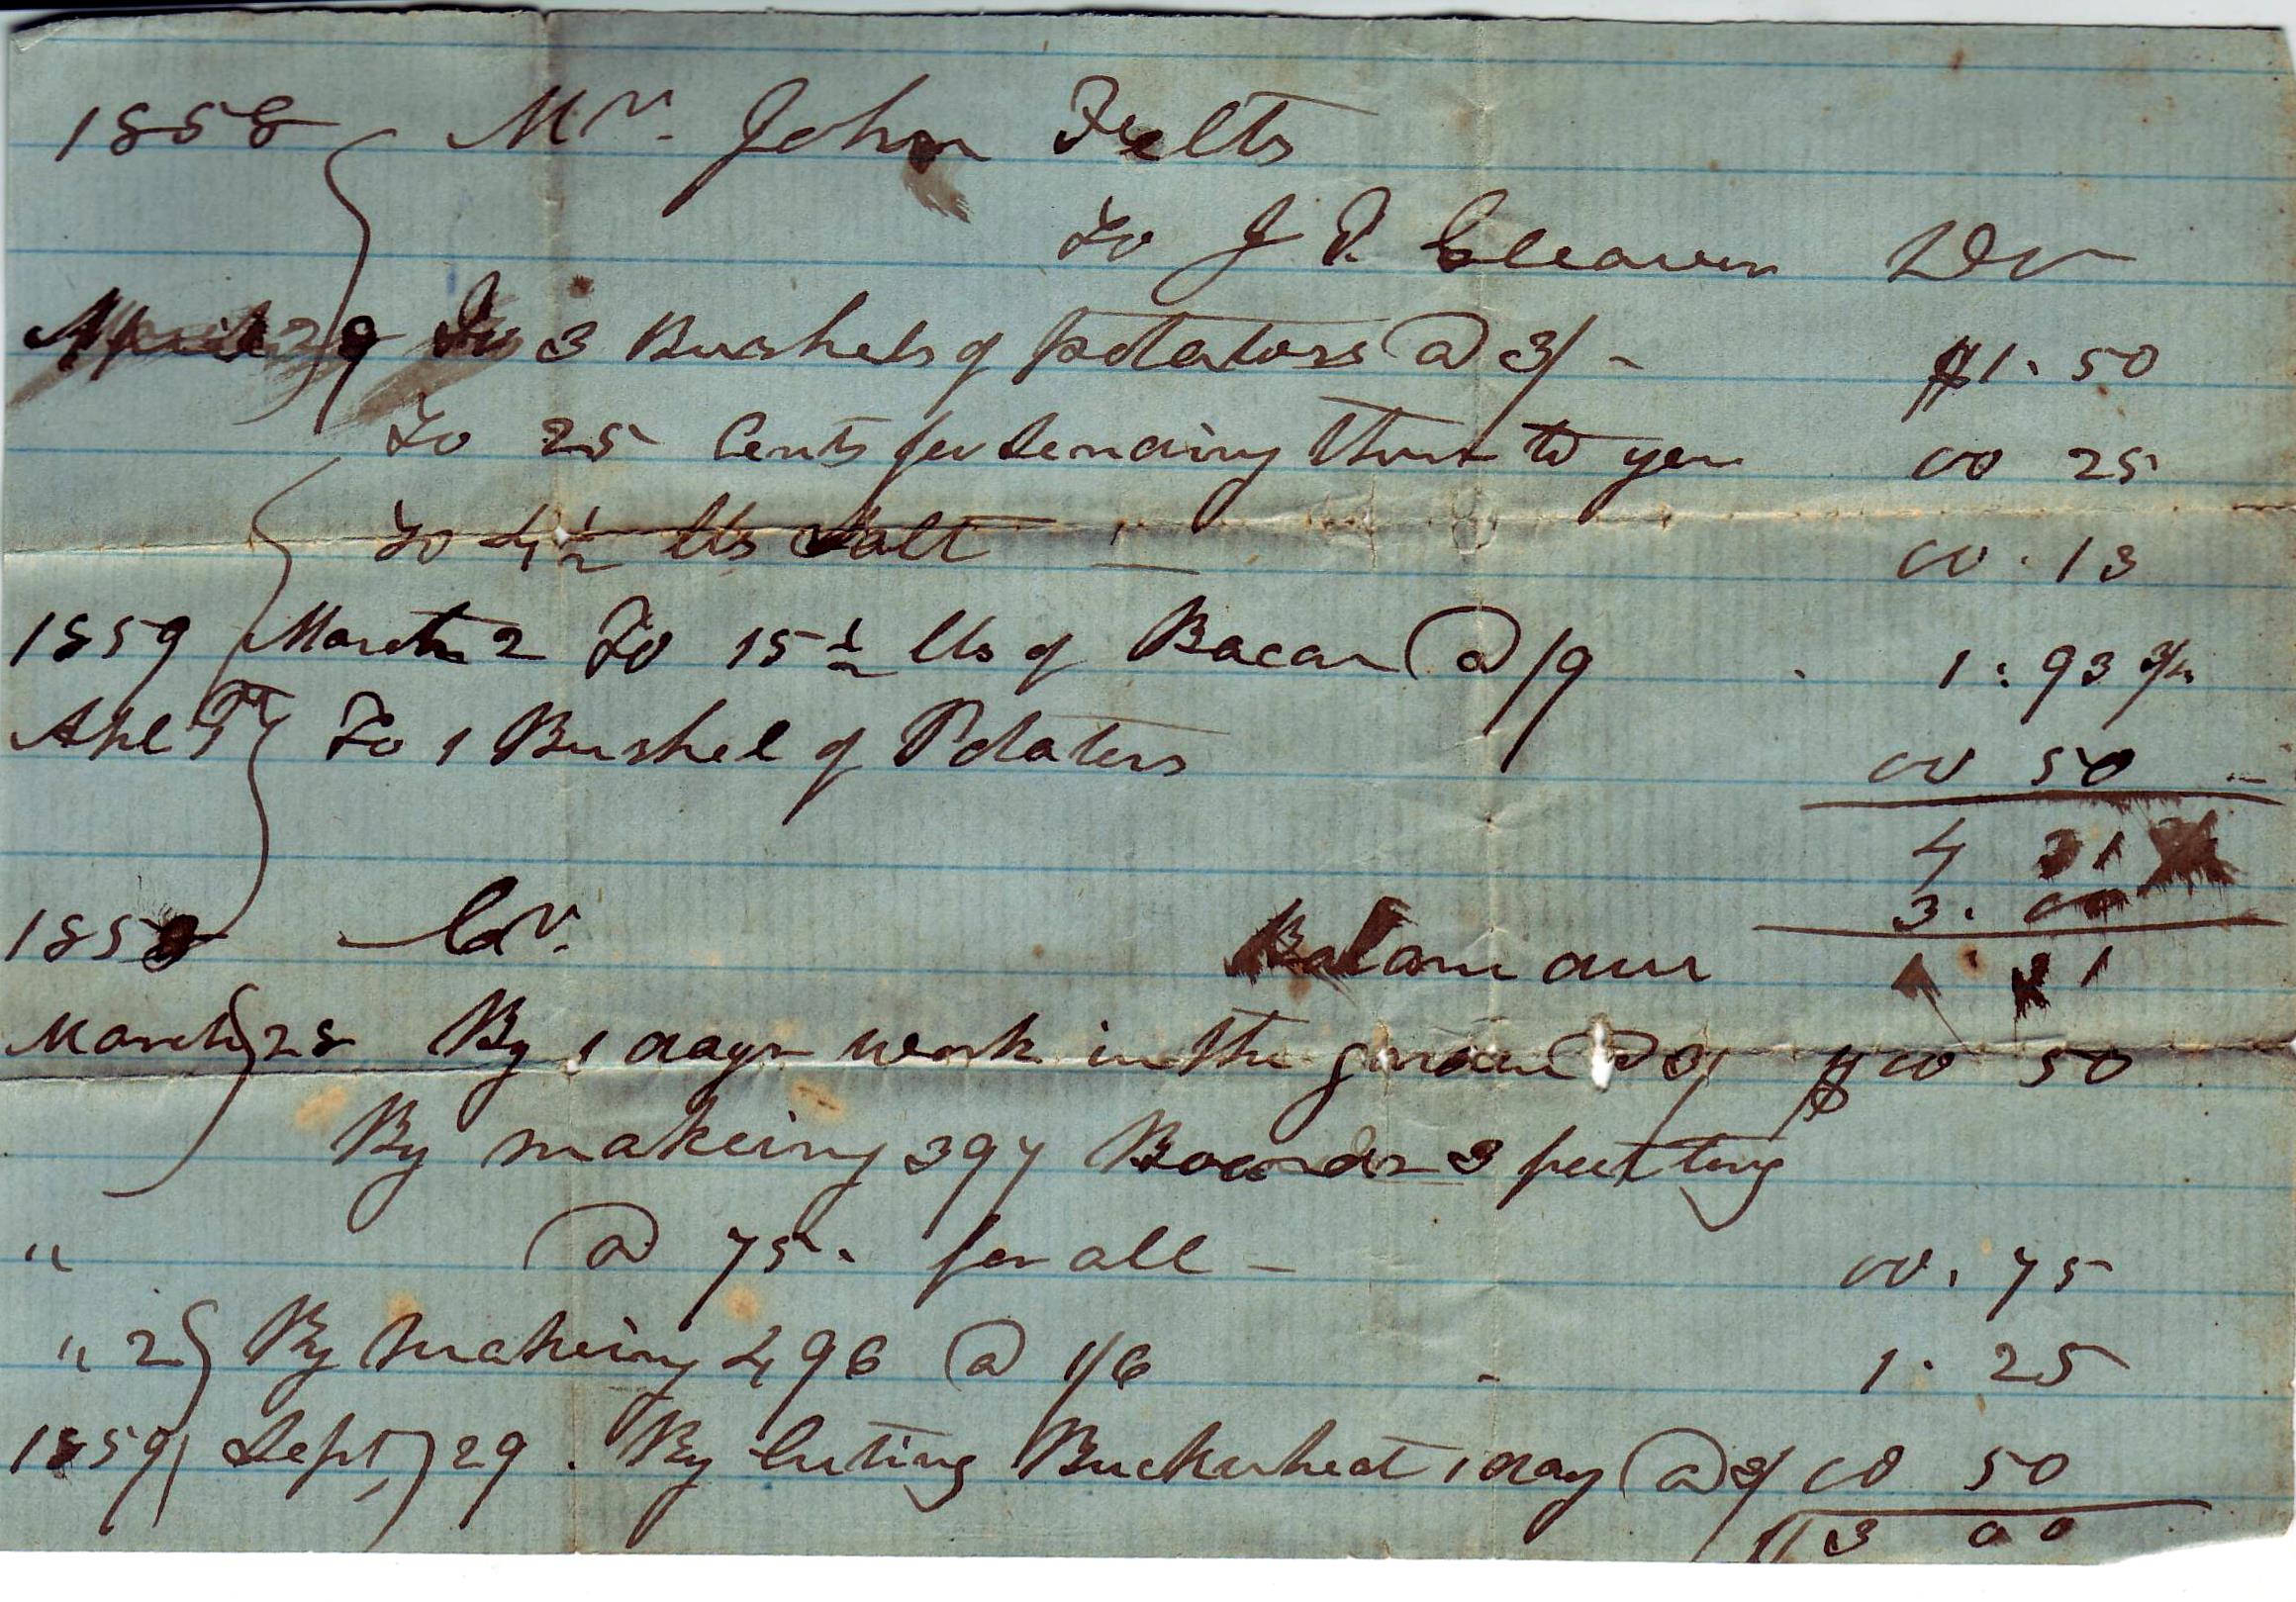 1858 Mr. John Felts
To J P. Cleaver Dr
April 29 To 3 Bushels of potatoes @ 3/- $1.50
To 25 Cents for sending them to you 00 25
To 4½ lbs Salt — 00.13
1859 March 2 To 15½ lbs of Bacon @ /9 1:93 3/4
Apl To 1 Bushel of Potatoes 00 50
4 31
3.00
1858 Cr. Balanc due 1.31
March 28 By 1 days work in the @ 3/ $ 00 50
By makeing 397 Boards 3 feet long
" @ 75. for all - 00.75
" 2 By makeing 496 @ 1/6 - 1.25
1859 Sept, 29. By cuting Buckwheat 1 day @ 3/ 00 50
$3 00